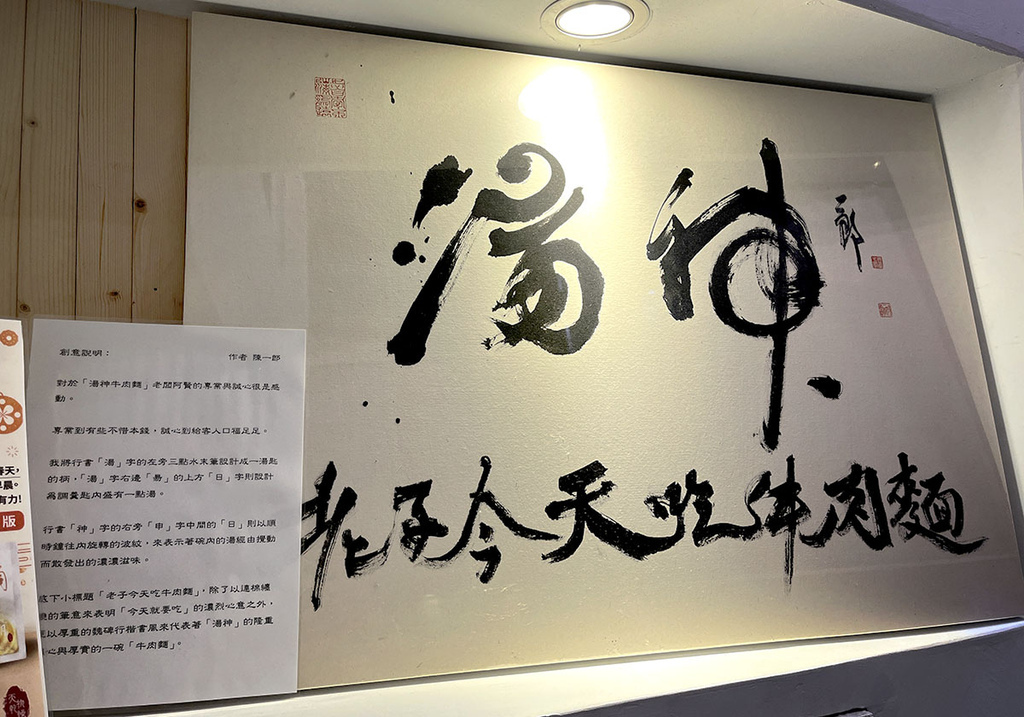 湯神
一郎
老子今天吃牛肉麵
創意說明：
作者 陳一郎
對於「湯神牛肉麵」老闆阿賢的專業與誠心很是感
動。
專業到有些不惜本錢，誠心到給客人口福足足。
我將行書「湯」字的左旁三點水末筆設計成一湯匙
的柄，「湯」字右邊「昜」的上方「日」字則設計
為調羹匙內盛有一點湯。
行書「神」字的右旁「申」字中間的「日」則以順
時鐘往內旋轉的波紋，來表示著碗內的湯經由攪動
而散發出的濃濃滋味。
底下小標題「老子今天吃牛肉麵」，除了以連棉纏
的筆意來表明「今天就要吃」的濃烈心意之外，
以厚重的魏碑行楷書風來代表著「湯神」的隆重
心與厚實的一碗「牛肉麵」。
天，
晨。
有力!
版